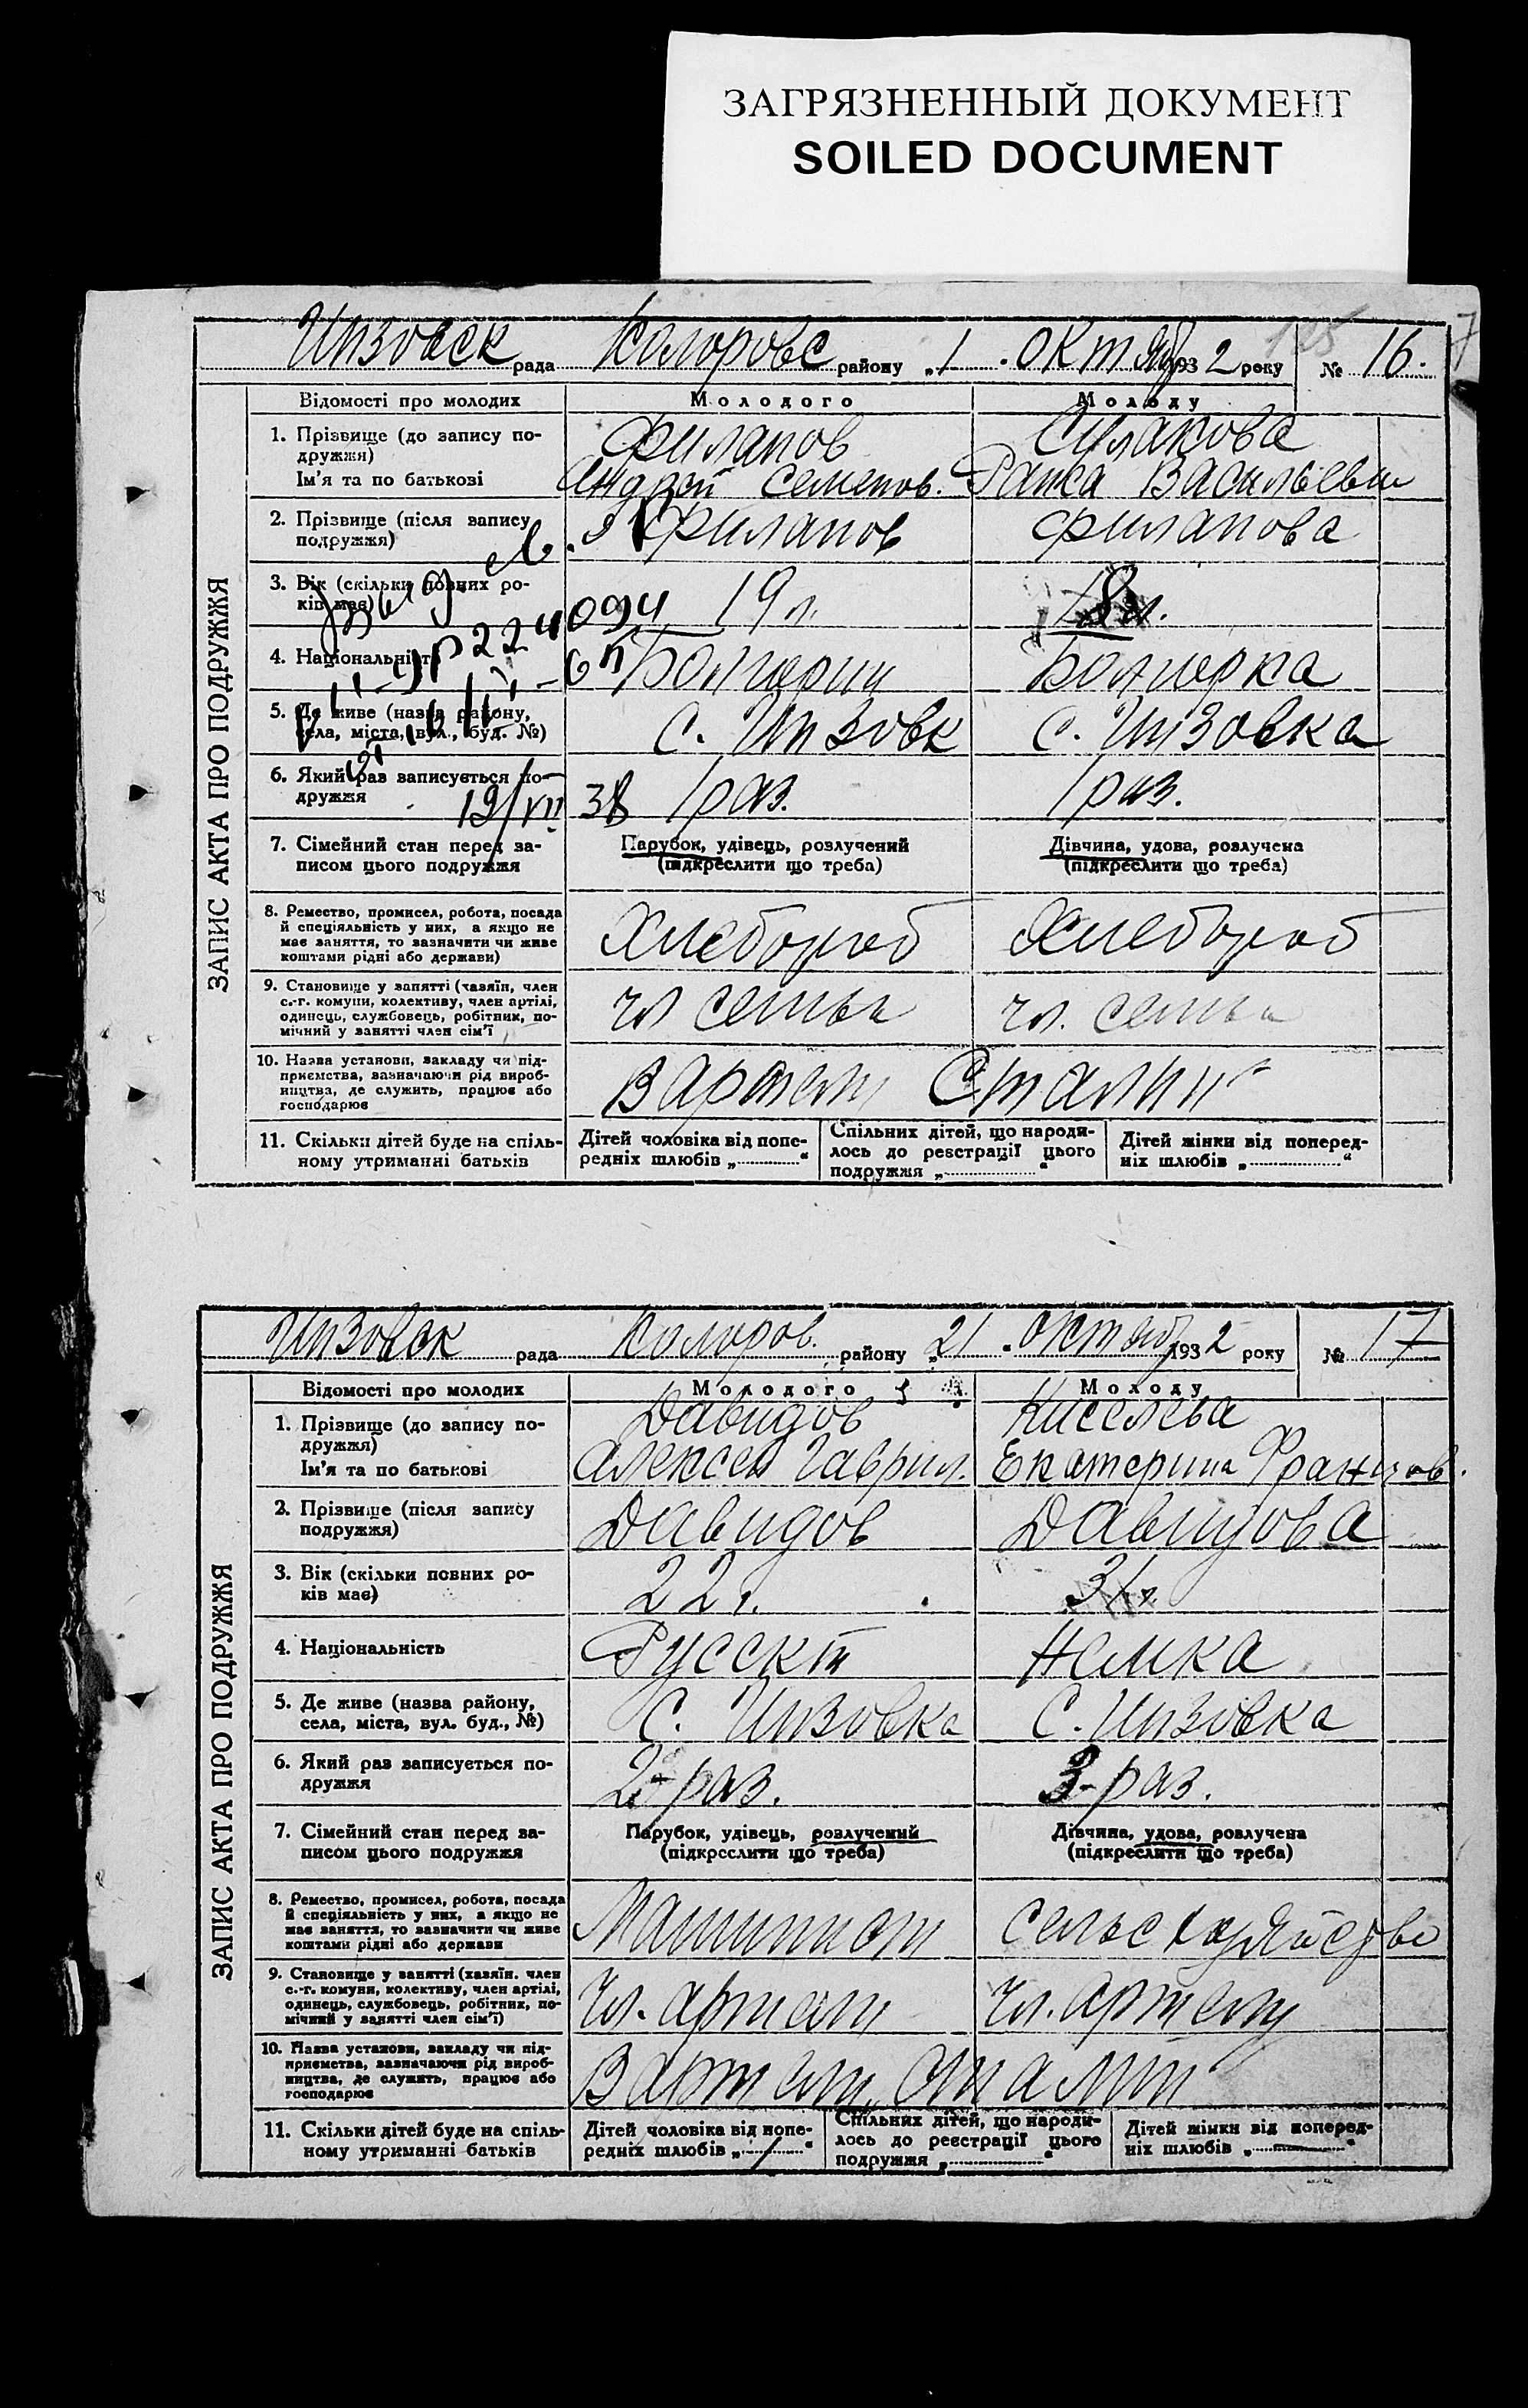 ЗАГРЯЗНЕННЫЙ ДОКУМЕНТ
SOILED DOCUMENT
рада Коларовс району „1 . октяб 1932 року № 16.
125
7
ЗАПИС АКТА ПРО ПОДРУЖЖЯ
Відомості про молодих
Молодого
Молоду
1. Прізвище (до запису по-
дружжя)
Ім'я та по батькові
Филапов
Андрей Семенов.
Сулакова
Раиса Васильевн
2. Прізвище (після запису
подружжя)
Филапов
Филапова
3. Вік (скільки повних ро-
ків має)
094
19 л.
18 л.
4. Національність
Болгарин
Болгарка
5. Де живе (назва району,
села, міста, вул., буд. №)
с. Инзовк
с. Инзовка
6. Який раз записується по-
дружжя
19/VII 38
1 раз.
1 раз.
7. Сімейний стан перед за-
писом цього подружжя
Парубок, удівець, розлучений
(підкреслити що треба)
Дівчина, удова, розлучена
(підкреслити що треба)
8. Ремество, промисел, робота, посада
й спеціяльність у них, а якщо не
має заняття, то зазначити чи живе
коштами рідні або держави)
Хлебороб
Хлебороб
9. Становище у занятті (хазяїн, член
с.-г. комуни, колективу, член артілі,
одинець, службовець, робітник, по-
мічний у занятті член сім'ї
чл семьи
чл. семьи
10. Назва установи, закладу чи під-
приємства, зазначаючи рід вироб-
ництва, де служить, працює або
господарює
В артели Сталин
11. Скільки дітей буде на спіль-
ному утриманні батьків
Дітей чоловіка від попе-
редніх шлюбів „............“
Спільних дітей, що народи-
лось до реєстрації цього
подружжя „............“
Дітей жінки від поперед-
ніх шлюбів „............“
Инзовск рада Коларов. району „21 . октяб 1932 року № 17
ЗАПИС АКТА ПРО ПОДРУЖЖЯ
Відомості про молодих
Молодого
Молоду
1. Прізвище (до запису по-
дружжя)
Ім'я та по батькові
Давидов
Алексей Гаврил.
Киселева
Екатерина Францов.
2. Прізвище (після запису
подружжя)
Давидов
Давидова
3. Вік (скільки повних ро-
ків має)
22 л.
31 л.
4. Національність
Русскій
Немка
5. Де живе (назва району,
села, міста, вул. буд., №)
с. Инзовка
с. Инзовка
6. Який раз записується по-
дружжя
2-раз.
3-раз.
7. Сімейний стан перед за-
писом цього подружжя
Парубок, удівець, розлучений
(підкреслити що треба)
Дівчина, удова, розлучена
(підкреслити що треба)
8. Ремество, промисел, робота, посада
й спеціяльність у них, а якщо не
має заняття, то зазначити чи живе
коштами рідні або держави
Машинист
9. Становище у занятті (хазяїн. член
с.-г. комуни, колективу, член артілі,
одинець, службовець, робітник, по-
мічний у занятті член сім'ї)
Чл. артели
Чл. артели
10. Назва установи, закладу чи під-
приємства, зазначаючи рід вироб-
ництва, де служить, працює або
господарює
В артели Сталин
11. Скільки дітей буде на спіль-
ному утриманні батьків
Дітей чоловіка від попе-
редніх шлюбів „.....1.....“
Спільних дітей, що народи-
лось до реєстрації цього
подружжя „............“
Дітей жінки від поперед-
ніх шлюбів „............“